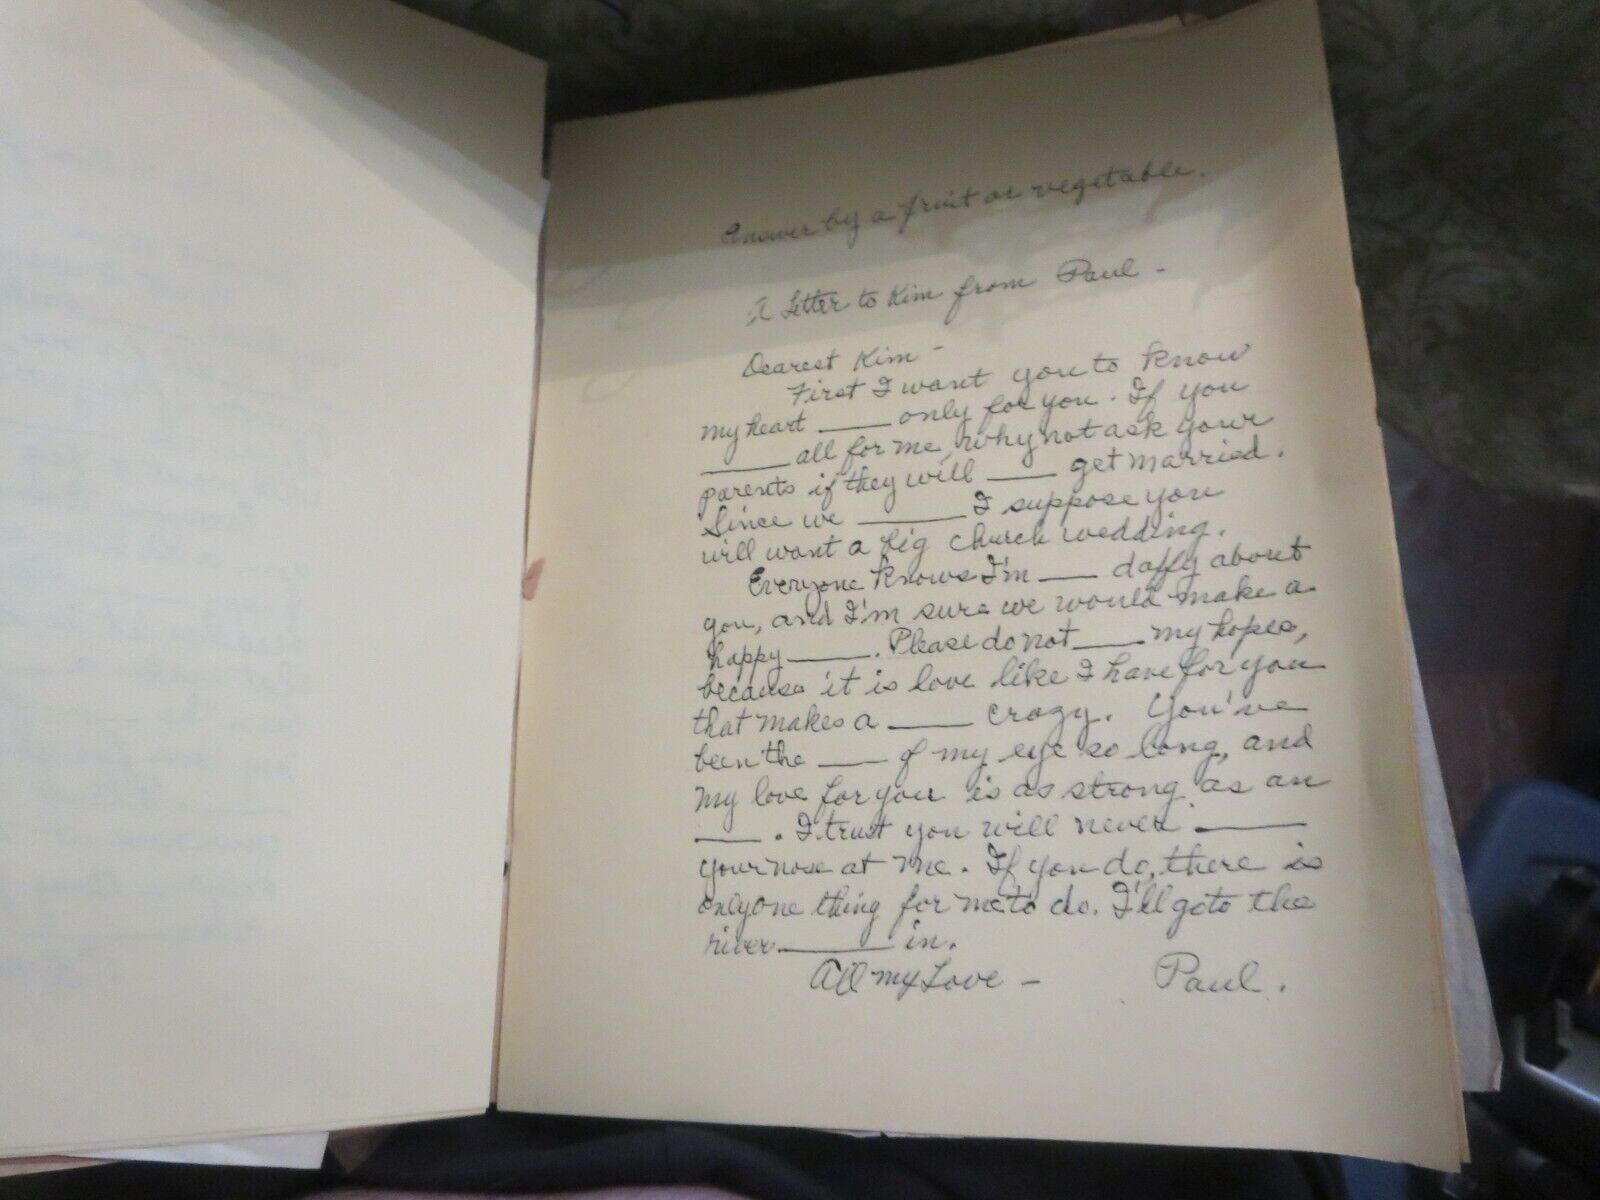 Answer by a fruit or vegetable.
A Letter to Kim from Paul -
Dearest Kim -
First I want you to know
my heart ____ only for you. If you
____ all for me, why not ask your
parents if they will ____ get married.
Since we ____ I suppose you
will want a big church wedding.
Everyone knows I'm ____ daffy about
you, and I'm sure we would make a
happy ____. Please do not ____ my hopes,
because it is love like I have for you
that makes a ____ crazy. You've
been the ____ of my eye so long, and
my love for you is as strong as an
____. I trust you will never ____
your nose at me. If you do, there is
only one thing for me to do. I'll go to the
river ____ in.
All my Love - Paul.